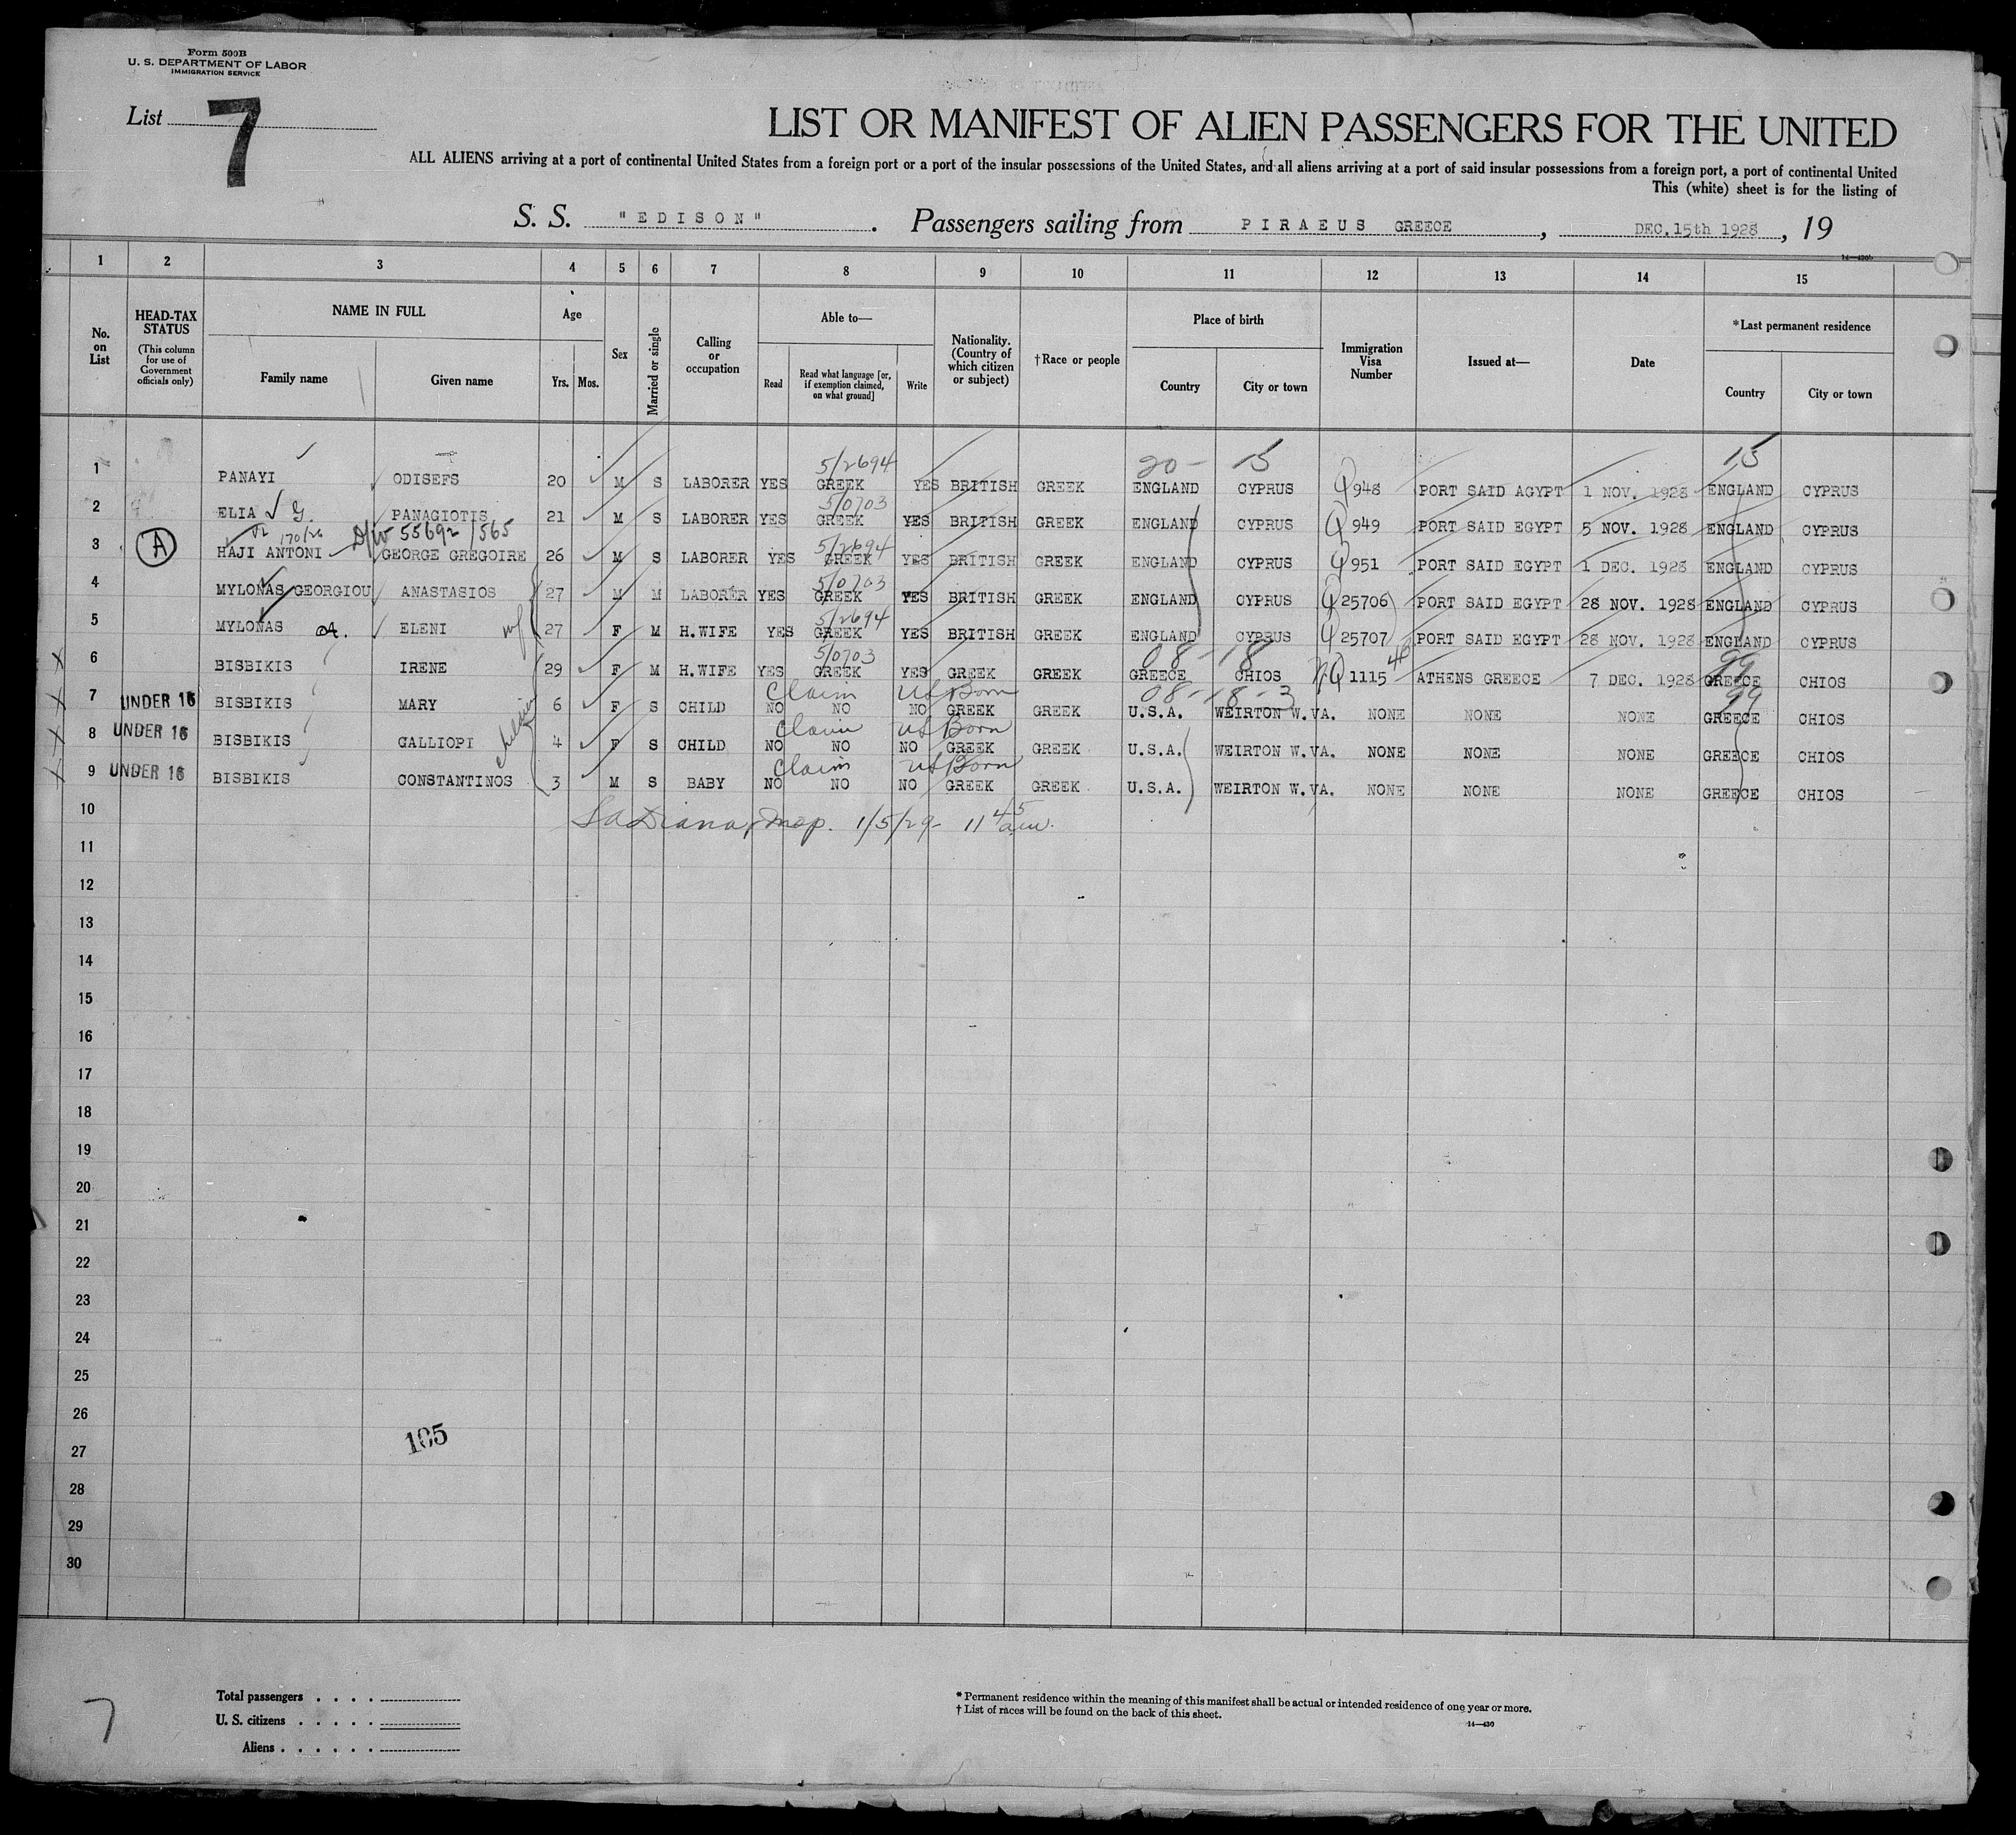 Form 500B
U. S. DEPARTMENT OF LABOR
IMMIGRATION SERVICE
List 7
LIST OR MANIFEST OF ALIEN PASSENGERS FOR THE UNITED
ALL ALIENS arriving at a port of continental United States from a foreign port or a port of the insular possessions of the United States, and all aliens arriving at a port of said insular possessions from a foreign port, a port of continental United
This (white) sheet is for the listing of
S. S. "EDISON". Passengers sailing from PIRAEUS GREECE, DEC.15th 1928, 19
1 2 3 4 5 6 7 8 9 10 11 12 13 14 15
No. on List
HEAD-TAX STATUS
(This column for use of Government officials only)
NAME IN FULL
Family name
Given name
Age
Yrs. Mos.
Sex
Married or single
Calling or occupation
Able to—
Read
Read what language [or, if exemption claimed, on what ground]
Write
Nationality. (Country of which citizen or subject)
†Race or people
Place of birth
Country
City or town
Immigration Visa Number
Issued at—
Date
*Last permanent residence
Country
City or town
5/2694 20- 15 15
1 PANAYI ODISEFS 20 M S LABORER YES GREEK YES BRITISH GREEK ENGLAND CYPRUS Q 948 PORT SAID AGYPT 1 NOV. 1928 ENGLAND CYPRUS
5/0703
2 ELIA G. PANAGIOTIS 21 M S LABORER YES GREEK YES BRITISH GREEK ENGLAND CYPRUS Q 949 PORT SAID EGYPT 5 NOV. 1928 ENGLAND CYPRUS
170/26 55692/565 5/2694
3 A HAJI ANTONI GEORGE GREGOIRE 26 M S LABORER YES GREEK YES BRITISH GREEK ENGLAND CYPRUS Q 951 PORT SAID EGYPT 1 DEC. 1928 ENGLAND CYPRUS
5/0703
4 MYLONAS GEORGIOU ANASTASIOS 27 M M LABORER YES GREEK YES BRITISH GREEK ENGLAND CYPRUS Q 25706 PORT SAID EGYPT 28 NOV. 1928 ENGLAND CYPRUS
5/2694
5 MYLONAS A. ELENI wf 27 F M H.WIFE YES GREEK YES BRITISH GREEK ENGLAND CYPRUS Q 25707 PORT SAID EGYPT 28 NOV. 1928 ENGLAND CYPRUS
5/0703 08-18 99
6 BISBIKIS IRENE 29 F M H.WIFE YES GREEK YES GREEK GREEK GREECE CHIOS NQ 1115 ATHENS GREECE 7 DEC. 1928 GREECE CHIOS
Claim US Born 08-18-3 99
7 UNDER 16 BISBIKIS MARY 6 F S CHILD NO NO NO GREEK GREEK U.S.A. WEIRTON W.VA. NONE NONE NONE GREECE CHIOS
Claim US Born
8 UNDER 16 BISBIKIS GALLIOPI 4 F S CHILD NO NO NO GREEK GREEK U.S.A. WEIRTON W.VA. NONE NONE NONE GREECE CHIOS
Claim US Born
9 UNDER 16 BISBIKIS CONSTANTINOS 3 M S BABY NO NO NO GREEK GREEK U.S.A. WEIRTON W.VA. NONE NONE NONE GREECE CHIOS
10 1/5/29- 11 45 am.
11
12
13
14
15
16
17
18
19
20
21
22
23
24
25
26
105
27
28
29
30
7
Total passengers
U. S. citizens
Aliens
* Permanent residence within the meaning of this manifest shall be actual or intended residence of one year or more.
† List of races will be found on the back of this sheet.
14—430